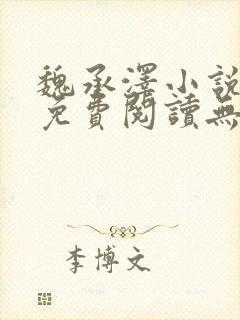 魏承澤小說
免費閱讀無
李博文